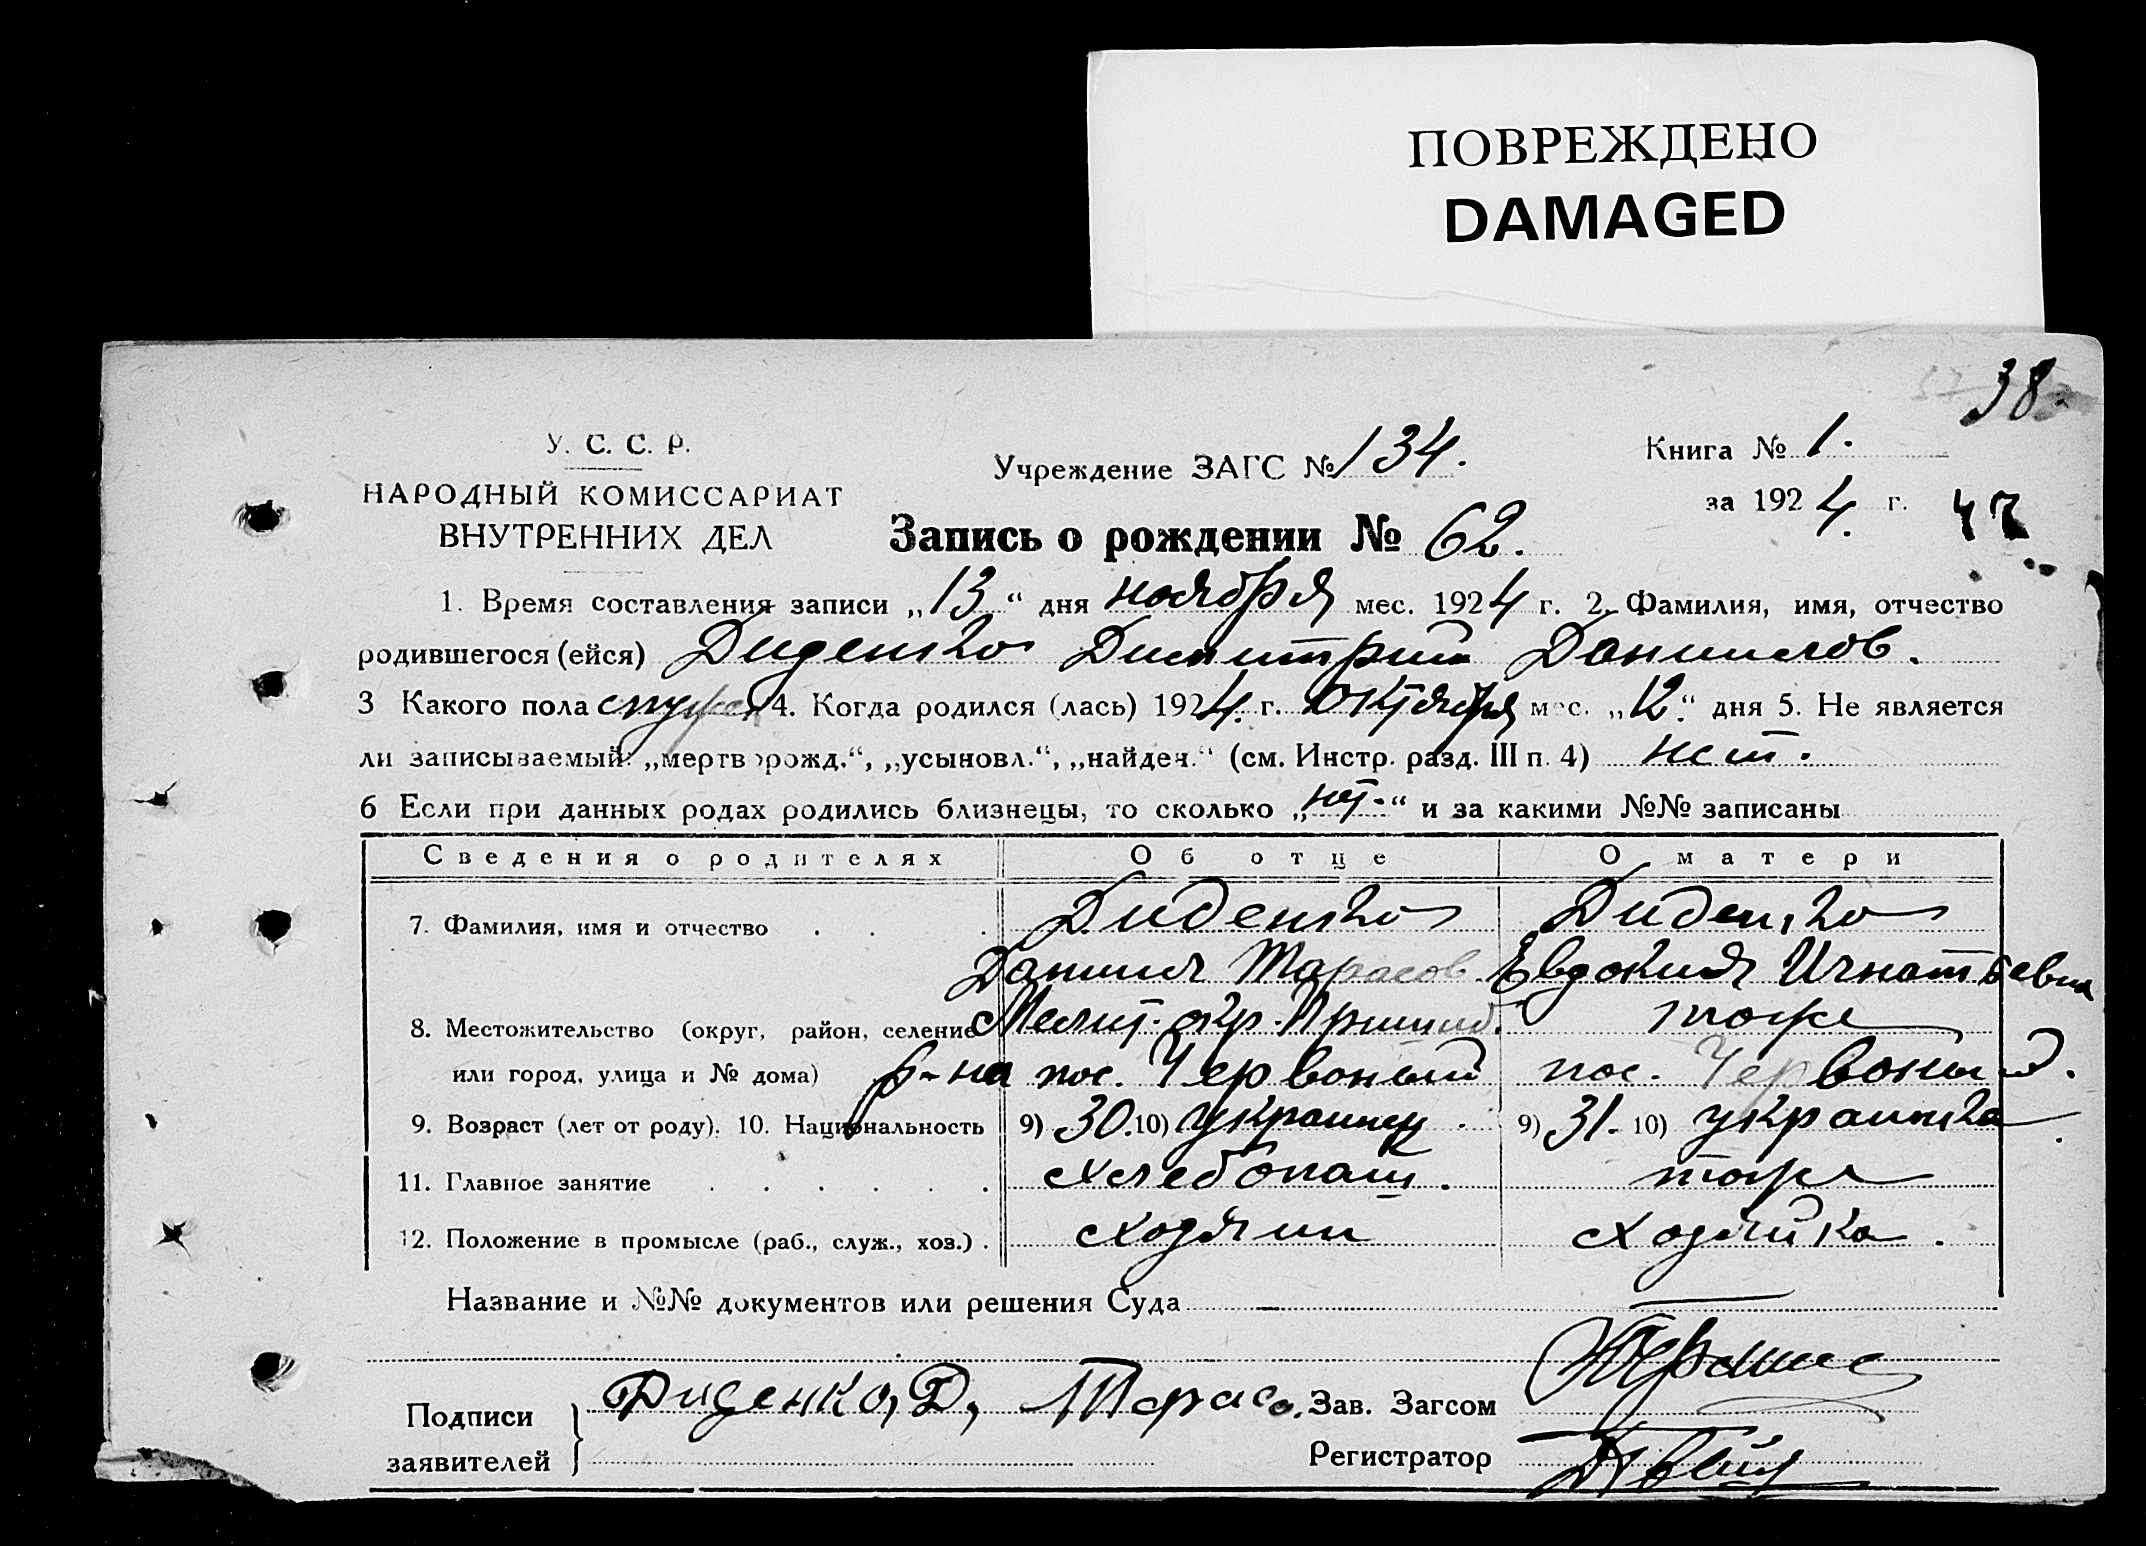 ПОВРЕЖДЕНО
DAMAGED
38.
У. С. С. Р.
НАРОДНЫЙ КОМИССАРИАТ
ВНУТРЕННИХ ДЕЛ
Учреждение ЗАГС № 134.
Книга № 1.
за 1924 г. 47
Запись о рождении № 62.
1. Время составления записи „13“ дня ноября мес. 1924 г. 2. Фамилия, имя, отчество
родившегося (ейся) Диденко Димитрий Данилов.
3 Какого пола 4. Когда родился (лась) 1924 г. октября мес. „12“ дня 5. Не является
ли записываемый: „мертворожд.“, „усыновл.“, „найден.“ (см. Инстр. разд. III п. 4) нет.
6 Если при данных родах родились близнецы, то сколько „нет“ и за какими №№ записаны
Сведения о родителях Об отце О матери
7. Фамилия, имя и отчество . . . Диденко Диденко
Даниил Тарасов Евдокия Игнатьевна
8. Местожительство (округ, район, селение Мелит. окр. тоже
или город, улица и № дома) р-на пос. Червоный пос. Червоный.
9. Возраст (лет от роду). 10. Национальность 9) 30. 10) украинец 9) 31. 10) украинка
11. Главное занятие . . . . . . хлебопаш. тоже
12. Положение в промысле (раб., служ., хоз.) . хозяин хозяйка.
Название и №№ документов или решения Суда —
Подписи
заявителей
Диденко, Д, Тарасо.
Зав. Загсом
Регистратор